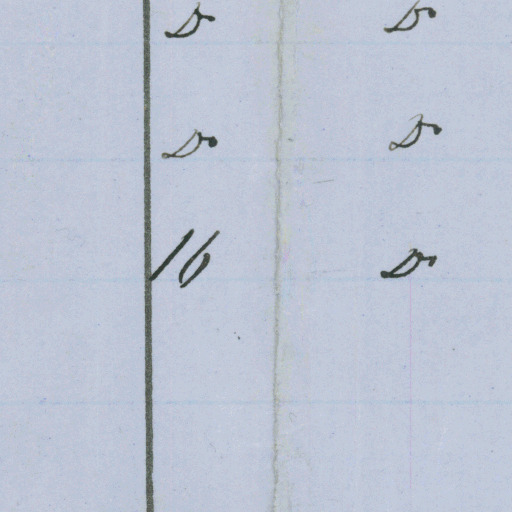 Do Do
Do Do
16 Do